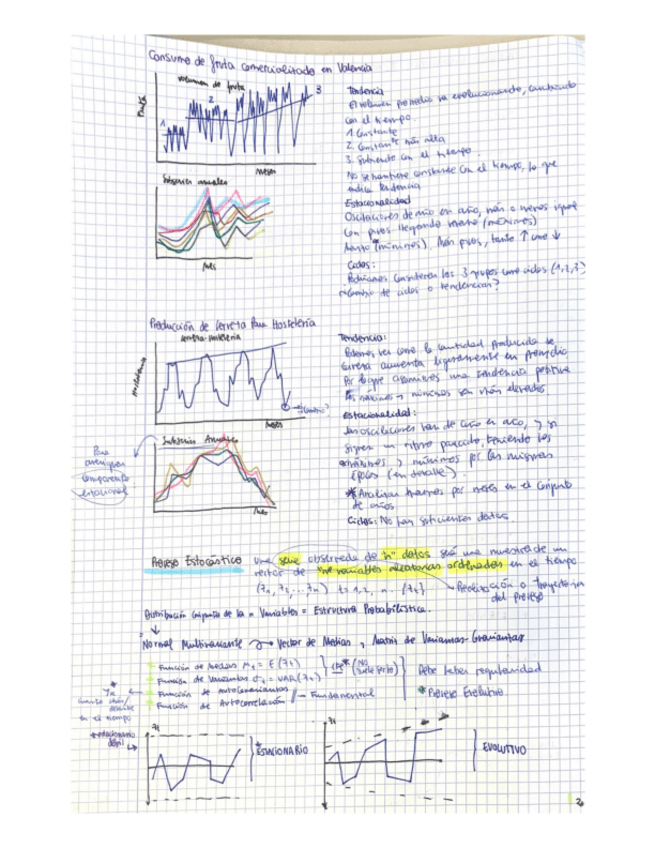 Consumo de fruta comercializado en Valencia
Volumen de fruta
1
2
3
Meses
Subseries anuales
Mes
Tendencia
El volumen promedio va evolucionando, cambiando
con el tiempo.
1. Constante
2. Constante más alta
3. Subiendo con el tiempo.
No se mantiene constante con el tiempo, lo que
indica tendencia
Estacionalidad
Oscilaciones de año en año, más o menos igual
con picos llegando verano (máximos)
(mínimos). Más picos, tanto ↑ como ↓
Ciclos:
Podríamos considerar los 3 grupos como ciclos (1,2,3)
¿Cambio de ciclos o tendencias?
Producción de Cerveza Para Hostelería
Cerveza-Hostelería
Hostelería
¿Cambio?
Meses
Subseries Anuales
Mes
Para
componente
estacional
Tendencia:
Podemos ver como la cantidad producida de
cerveza aumenta ligeramente en promedio
Por lo que asumimos una tendencia positiva
Los máximos y mínimos son más elevados
Estacionalidad:
Las oscilaciones van de año en año, y
siguen un ritmo pausado, teniendo los
máximos y mínimos por las mismas
épocas (en detalle)
* Analizar meses por meses en el conjunto
de años
Ciclos: No hay suficientes datos.
Proceso Estocástico una serie observada de "n" datos será una muestra de un
vector de "n" variables aleatorias ordenadas en el tiempo
t=1,2,...n.
Realización o Trayectoria
del Proceso
Distribución conjunta de la n Variables = Estructura Probabilística.
↓
Normal Multivariante → Vector de Medias, Matriz de Varianzas-Covarianzas
Función de Medias
Función de Varianzas
Función de Autocovarianzas
Función de Autocorrelación
Fundamental
Debe haber regularidad
* Proceso Evolutivo
en el tiempo
*estacionario
débil
*ESTACIONARIO
EVOLUTIVO
2